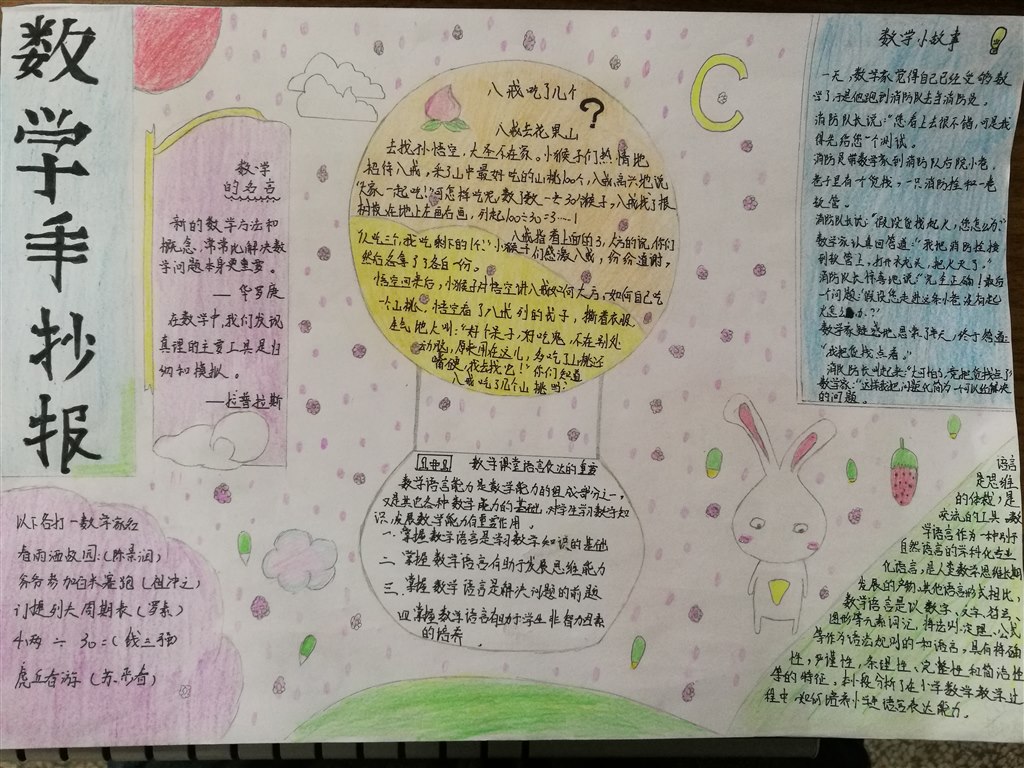 数学手抄报
数学
的名言
新的数学方法和
概念,常常比解决数
学问题本身更重要。
—华罗庚
在数学中,我们发现
真理的主要工具是归
纳和模拟。
—拉普拉斯
以下各打一数学家名
春雨洒故园:(陈景润)
爷爷参加百米赛跑(祖冲之)
订婚到大周期长(罗素)
4两÷30=(钱三强)
虎丘春游(苏步青)
八戒吃了几个?
八戒去花果山
去找孙悟空,大圣不在家。小猴子们热情地
招待八戒,采了山中最好吃的山桃100个,八戒高兴地说
“大家一起吃!”可怎样吃呢,数了数一共30只猴子,八戒找了根
树枝在地上左画右画,列起100÷30=3……1
八戒指着上面的3,大方的说,你们
一人吃三个,我吃剩下的1个!”小猴子们感激八戒,纷纷道谢,
然后各拿了各自一份。
悟空回来后,小猴子对悟空讲八戒如何大方,如何自己吃
一个山桃,悟空看了八戒列的式子,
气地大叫:“好个呆子,好吃鬼,不在别处
动脑,原来用在这儿,
嘴硬,我去找他!”你们知道
八戒吃了几个山桃吗?
数学课堂语言表达的重要
数学语言能力是数学能力的组成部分之一,
又是其他各种数学能力的基础,对学生学习数学知
识,发展数学能力有重要作用。
一、掌握数学语言是学习数学知识的基础
二、掌握数学语言有助于发展思维能力
三、掌握数学语言是解决问题的前题
四、掌握数学语言有助于学生非智力因素
的培养
C
数学小故事
一天,数学家觉得自己已经受够数
学了,于是他跑到消防队去当消防员。
消防队长说:“您看上去很不错,可是我
得先给您一个测试。
消防员带数学家到消防队后院小巷,
巷子里有一个货栈,一只消防栓和一卷
软管。
消防队长说:“假设货栈起火,您怎么办?”
数学家认真回答道:“我把消防栓接
到软管上,打开水龙头,把火灭了。”
消防队长惊喜地说“完全正确!最后
一个问题:假设您走进这条小巷,没有起
火怎么办?”
数学家疑惑地思索了半天,终于答道
“我把货栈点着。”
消防队长叫起来:“太可怕了,
数学家:“这样我把问题化简为一个可以解决
的问题。
语言
是思维
的体裁,是
交流的工具。数
学语言作为一种别于
自然语言的学科化专业
化语言,是人类数学思维长期
发展的产物。其他语言形式相比,
数学语言是以数字、文字、符号、
图形等元素词汇,将法则、定理、公式
等作为语法规则的一种语言,具有精确
性,严谨性,条理性、完整性和简洁性
等的特征,本小段分析了在小学数学教学过
程中,如何培养小学生语言表达能力。